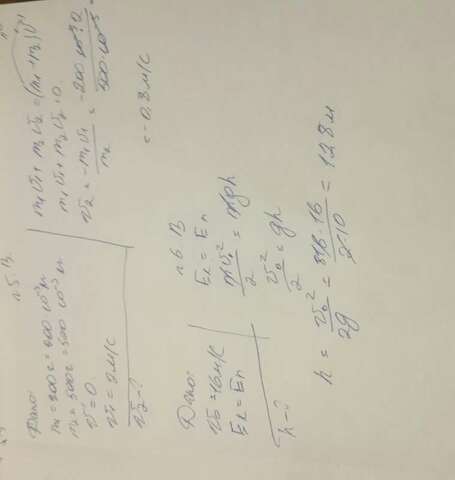 n.5. B.
Дано:
m₁ = 200г = 200·10⁻³ кг
m₂ = 500г = 500·10⁻³ кг
v = 0
v₁ = 2м/с
v₂ - ?
m₁v₁ + m₂v₂ = (m₁ + m₂)v
m₁v₁ + m₂v₂ = 0
v₂ = -m₁v₁/m₂ =
= -0.8 м/с
n.6 B
Дано:
v₀ = 16м/с
Eк = Eп
h - ?
Eк = Eп
mv₀²/2 = mgh
v₀²/2 = gh
h = v₀²/2g = 16·16/2·10 = 12.8 м